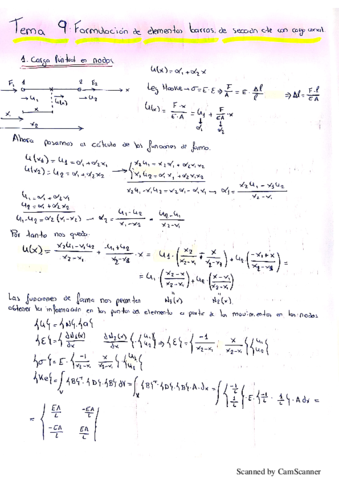 Tema 9: Formulación de elementos barras de sección cte con carga axial.
1. Carga Puntual en nodos
u(x) = α₁ + α₂x
F₁ 1 2 F₂ x
u₁ u(x) u₂
x
x₂
Ley Hooke → σ = E·ε; F/A = E·Δl/l ⇒ Δl = F·l/EA
u(x) = F·x/E·A = u₁ + F·x/EA
α₁ α₂
Ahora pasamos al cálculo de las funciones de forma.
u(x₁) = u₁ = α₁ + α₂x₁
u(x₂) = u₂ = α₁ + α₂x₂
x₂u₁ = x₂α₁ + α₂x₁x₂
x₁u₂ = α₁x₁ + α₂x₁x₂
x₂u₁ - x₁u₂ = x₂α₁ - α₁x₁ → α₁ = x₂u₁ - x₁u₂ / x₂-x₁
u₁ = α₁ + α₂x₁
u₂ = α₁ + α₂x₂
u₁-u₂ = α₂(x₁-x₂) → α₂ = u₁-u₂ / x₁-x₂ = u₂-u₁ / x₂-x₁
Por tanto nos queda:
u(x) = x₂u₁-x₁u₂ / x₂-x₁ + -u₁+u₂ / x₂-x₁ · x = u₁·(x₂/x₂-x₁ + x/x₁-x₂) + u₂(-x₁+x / x₂-x₁) =
= u₁(x₂-x / x₂-x₁) + u₂(x-x₁ / x₂-x₁)
N₁(x) N₂(x).
Las funciones de forma nos permiten
obtener la información en los puntos del elemento a partir de los movimientos en los nodos
{u} = {N}·{a}
Scanned by CamScanner